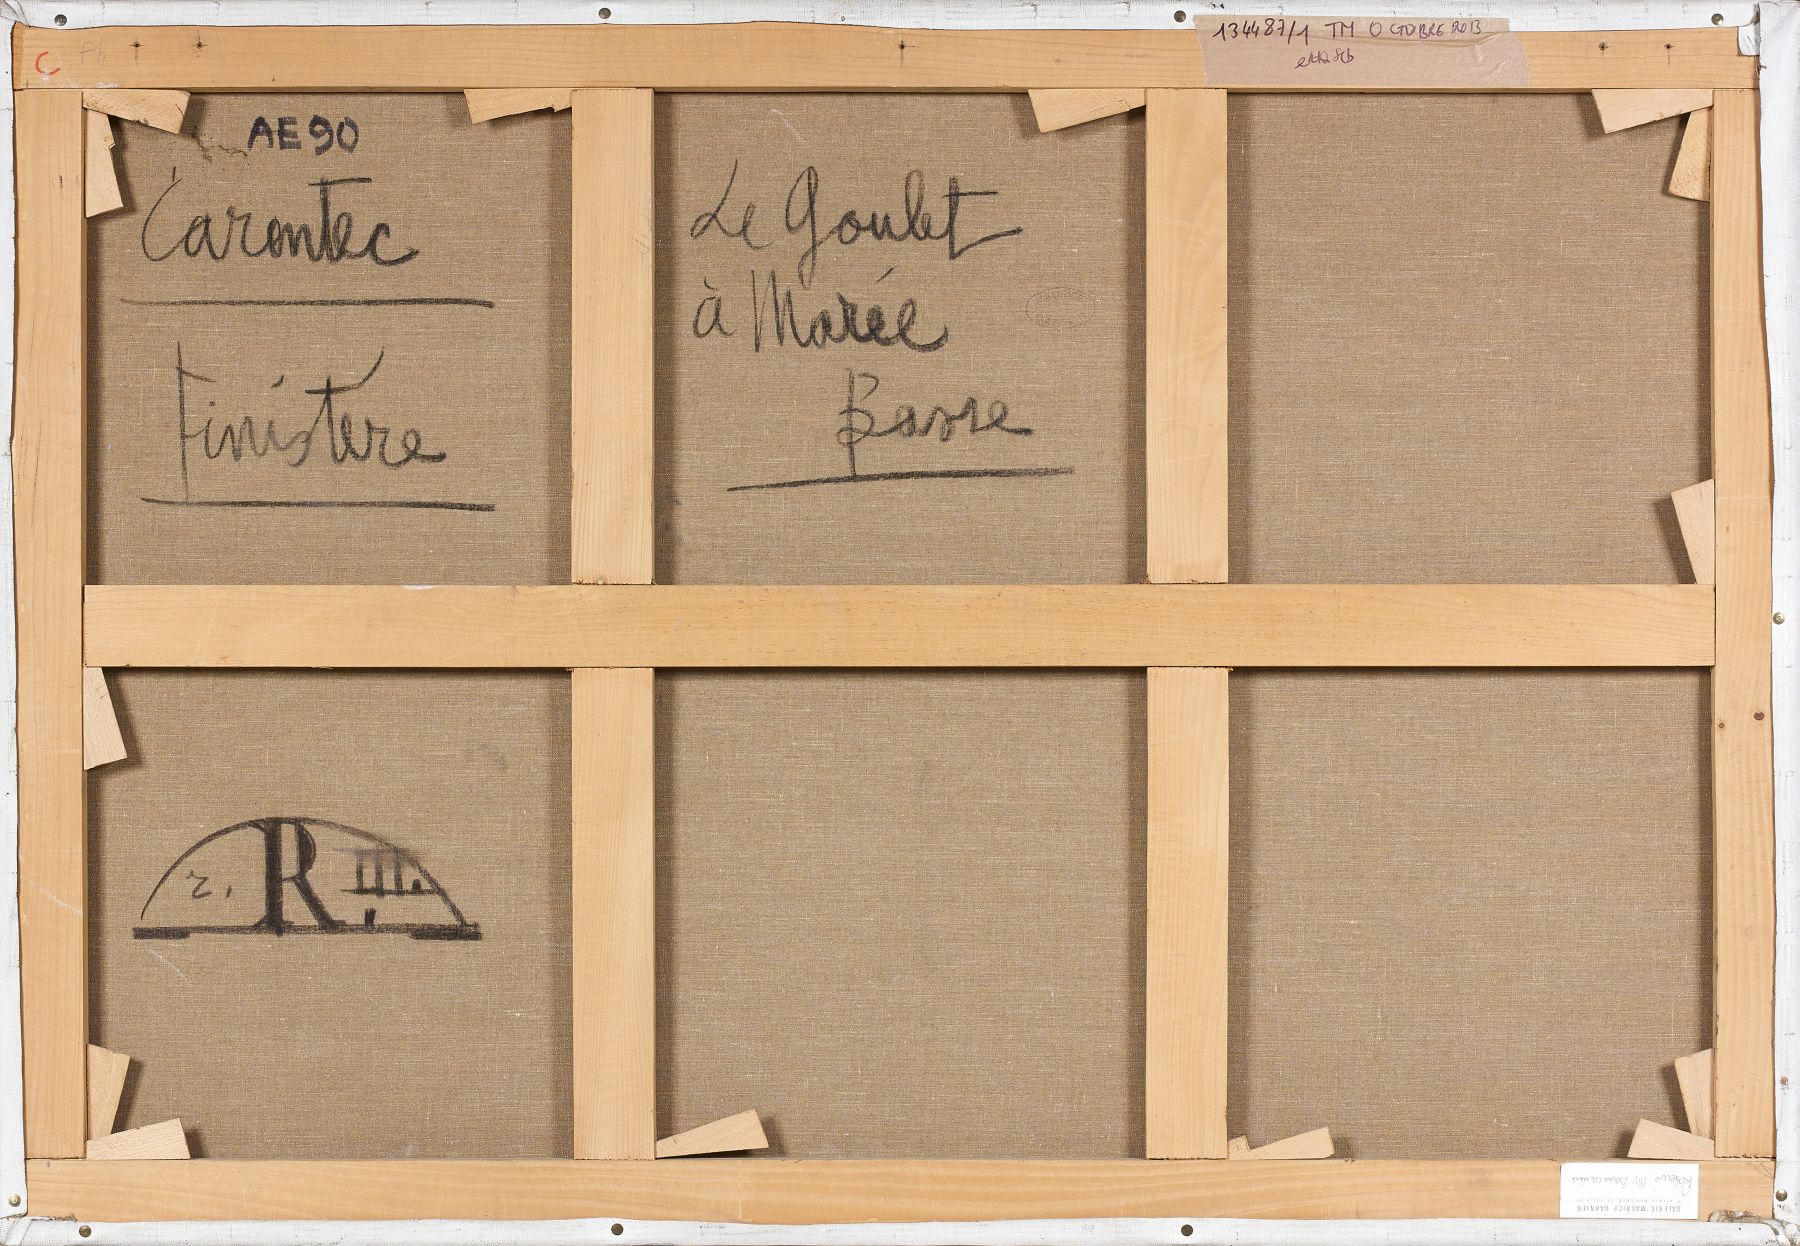 134487/1 TM OCTOBRE 2013
C
AE90
Carontec
Finistère
Le Goulet
à Marée
Basse
r. R III.
GALERIE MAURICE GARNIER